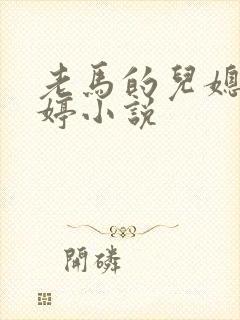 老馬的兒媳
婷小説
開磷